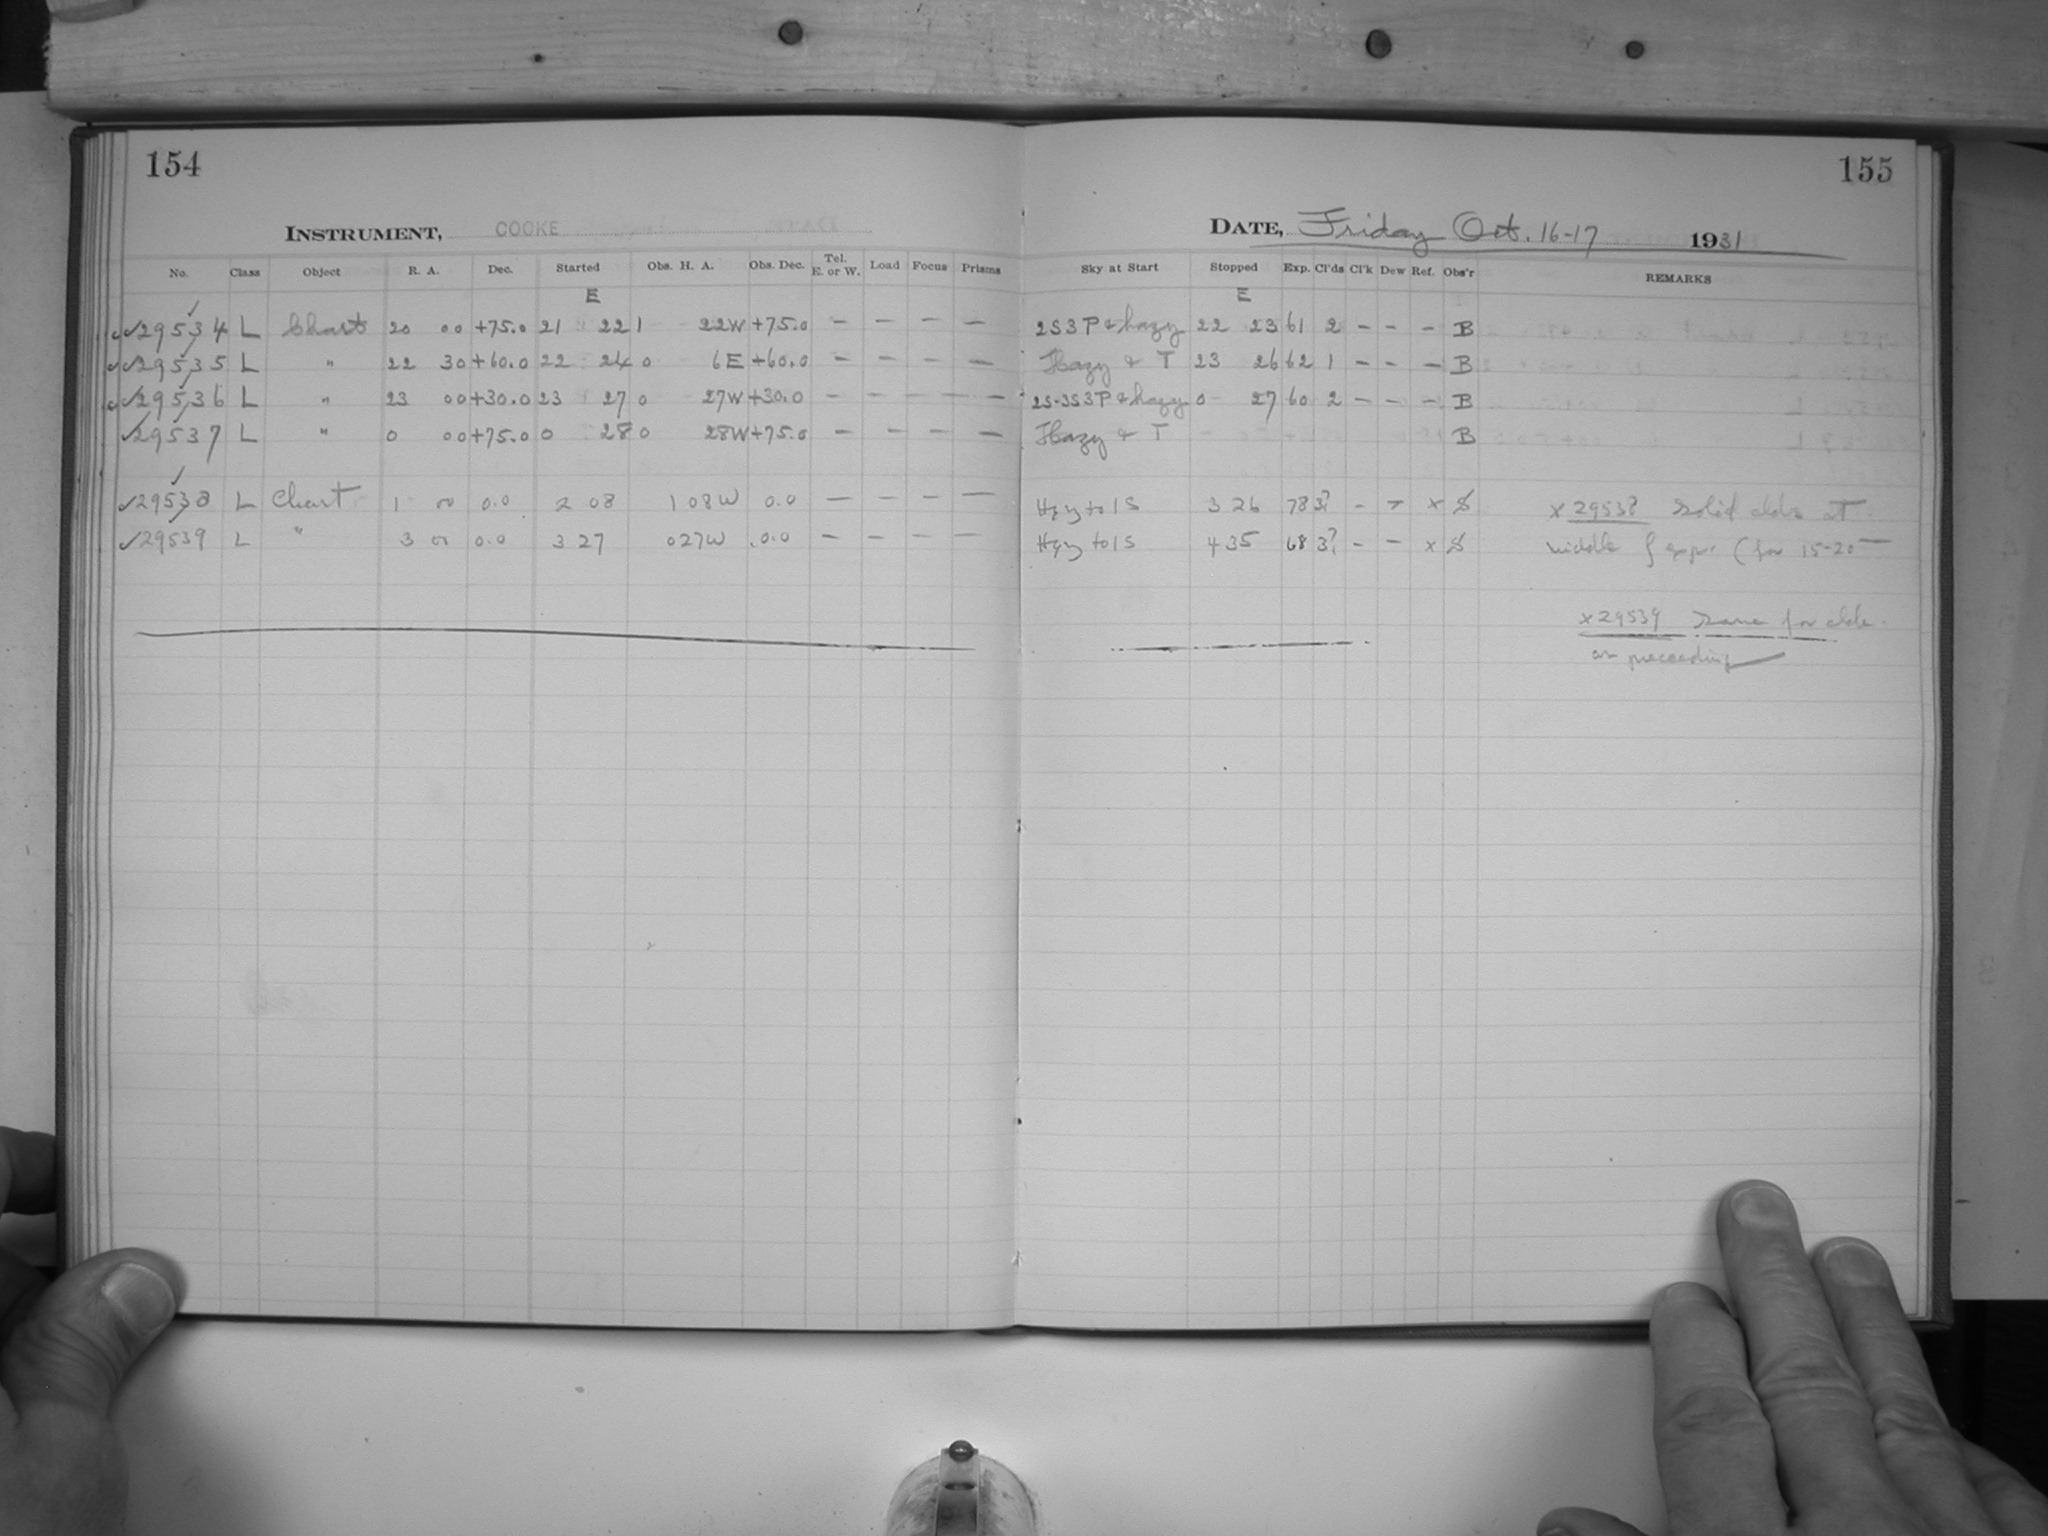 154
155
INSTRUMENT, COOKE
DATE, Friday Oct. 16-17 1931
No. Class Object R. A. Dec. Started Obs. H. A. Obs. Dec. Tel. E. or W. Load Focus Prisms Sky at Start Stopped Exp. Cl'ds Cl'k Dew Ref. Obs'r REMARKS
E E
✓29534 L Chart 20 00 +75.0 21 22 1 22W +75.0 — — — — 2S3P & hazy 22 23 61 2 – – – B
✓29535 L " 22 30 +60.0 22 24 0 6E +60.0 — — — — Hazy & T 23 26 62 1 – – – B
✓29536 L " 23 00 +30.0 23 27 0 27W +30.0 — — — — 2S-3S3P & hazy 0 27 60 2 – – – B
✓29537 L " 0 00 +75.0 0 28 0 28W +75.0 — — — — Hazy & T B
✓29538 L Chart 1 00 0.0 2 08 1 08W 0.0 — — — — Hzy to 1S 3 26 78 3? – – x S x 29538 solid clds at
✓29539 L " 3 00 0.0 3 27 0 27W 0.0 — — — — Hzy to 1S 4 35 68 3? – – x S middle of expr (for 15-20
x 29539 Same for clds
as preceeding